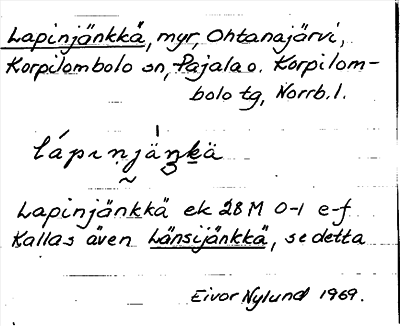 Lapinjänkkä, myr, Ohtanajärvi,
Korpilombolo sn, Pajala o. Korpilom-
bolo tg, Norrb. l.
lápinjäŋkä
Lapinjänkkä ek 28M 0-1 e-f
Kallas även Länsijänkkä, se detta
Eivor Nylund 1969.